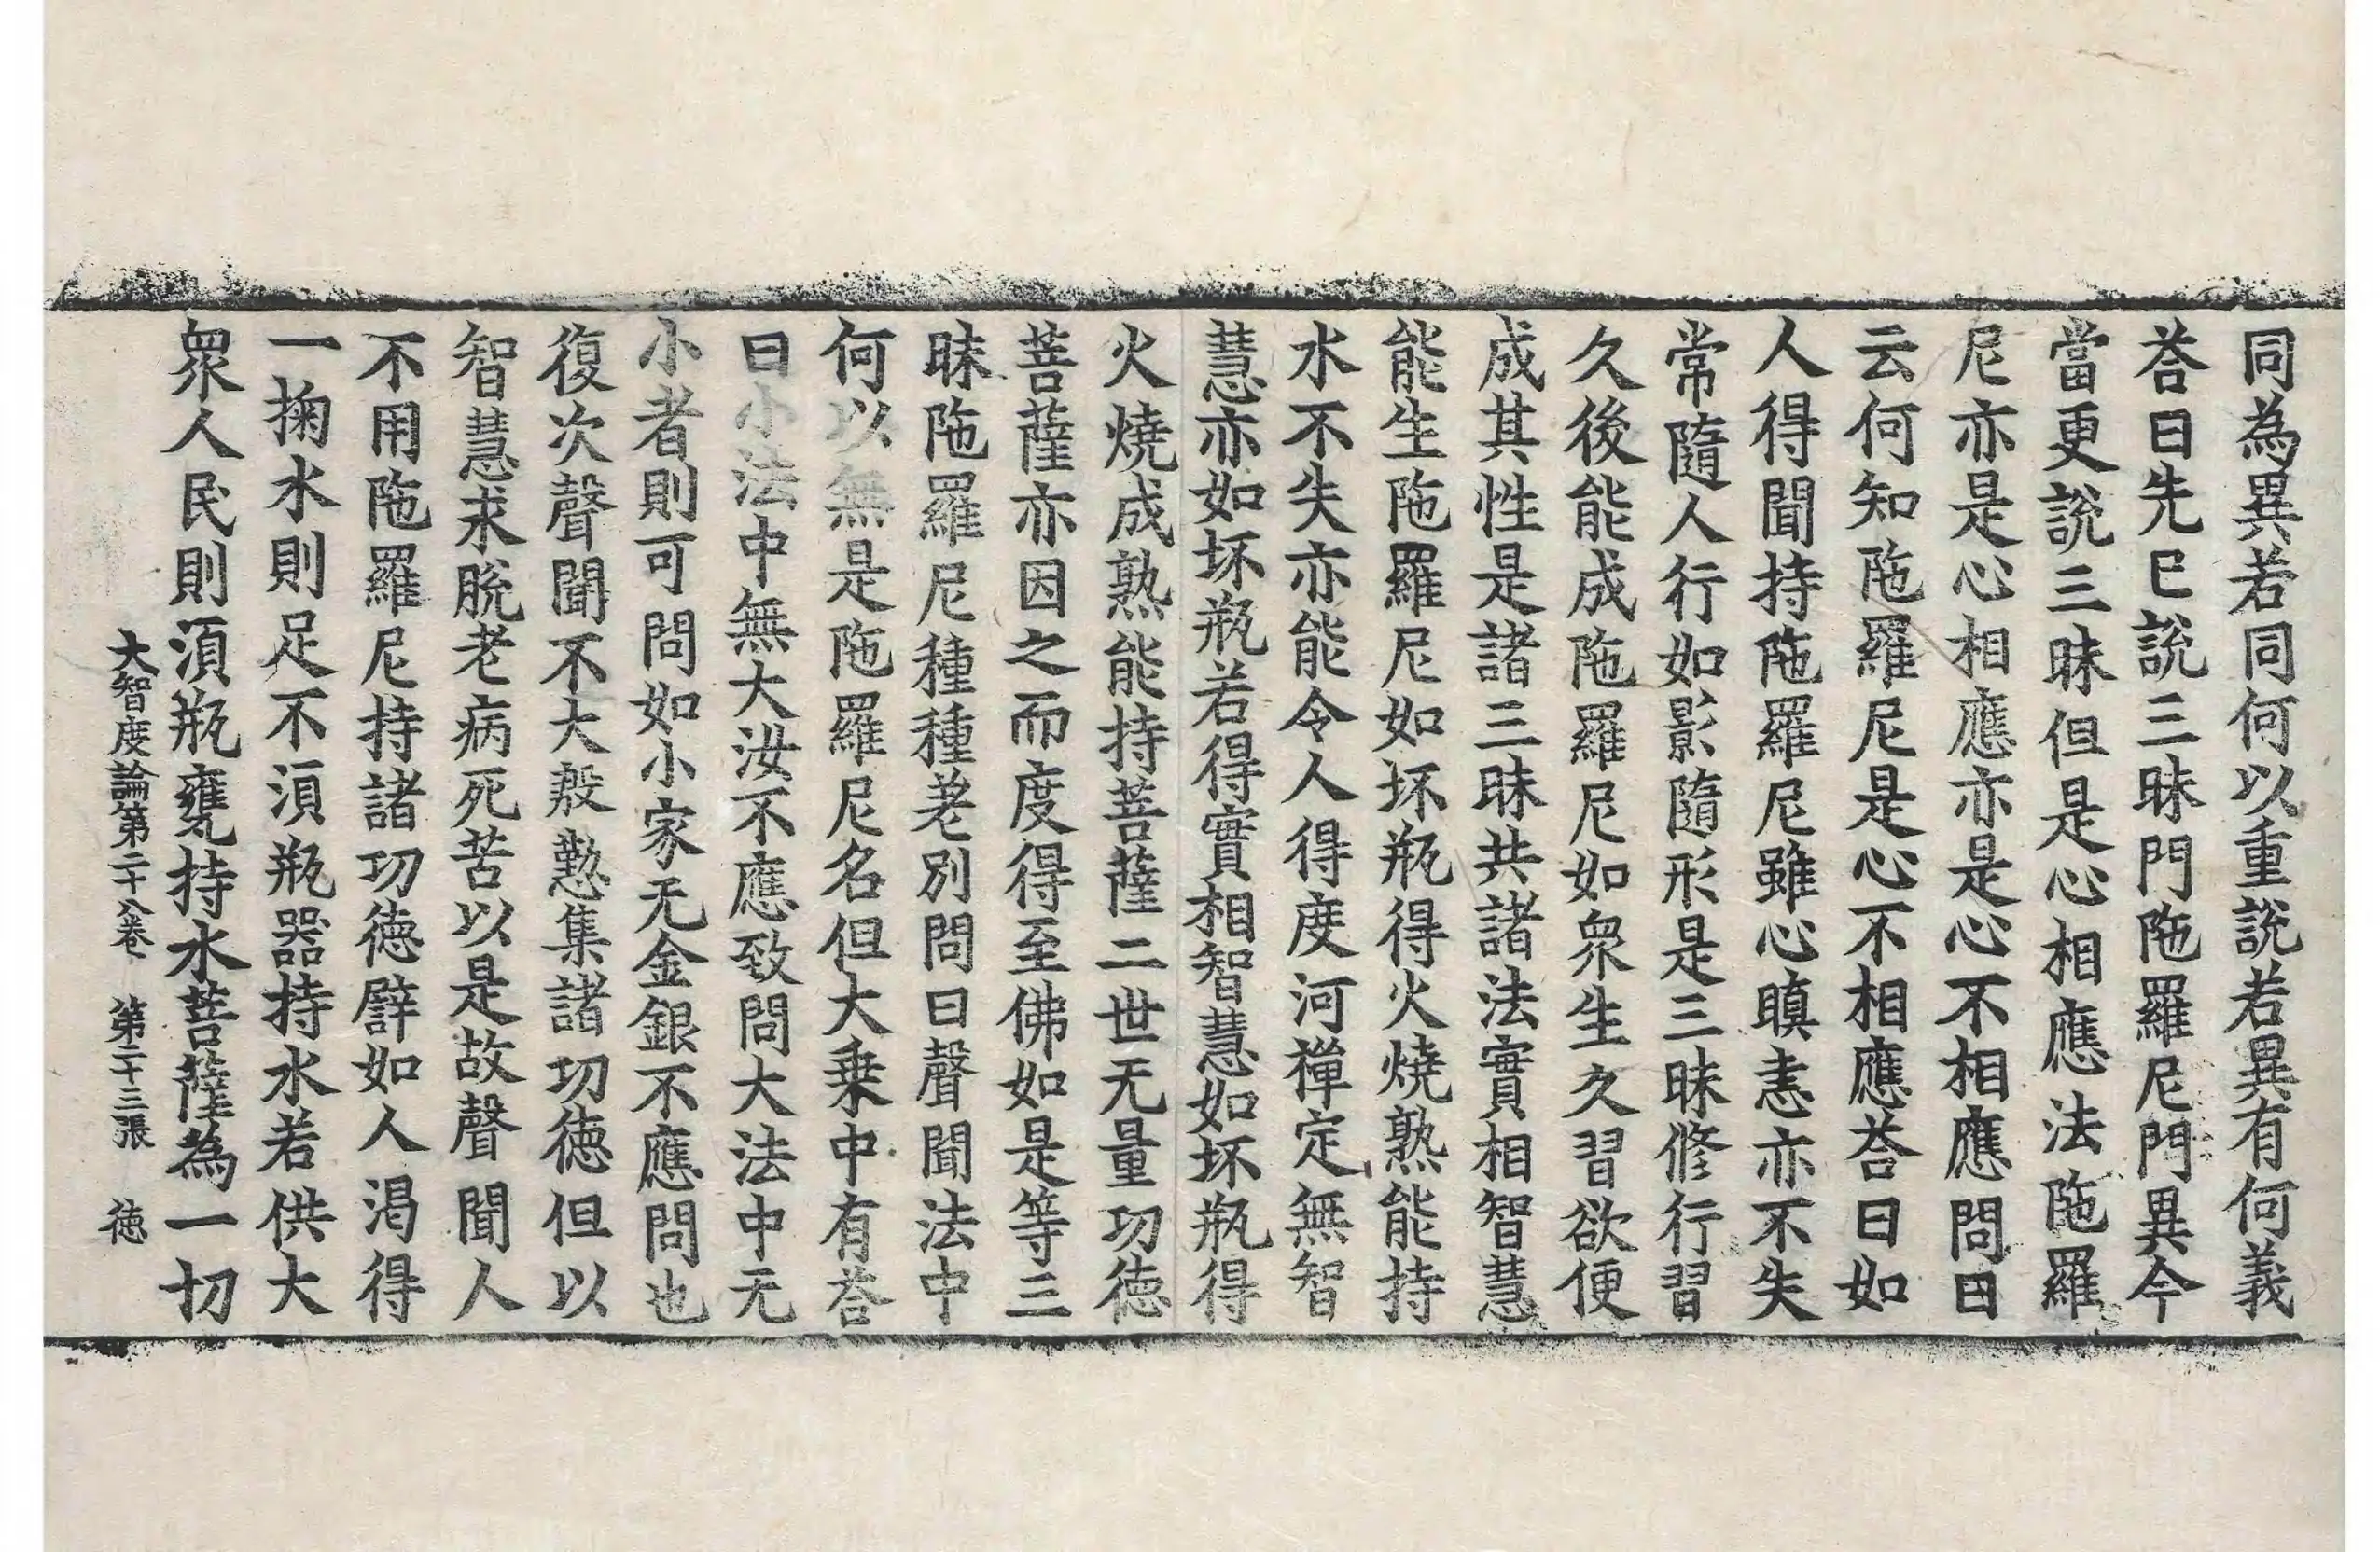 同為異若同何以重說若異有何義
荅曰先已說三昧門陁羅尼門異今
當更說三昧但是心相應法陁羅
尼亦是心相應亦是心不相應問曰
云何知陁羅尼是心不相應荅曰如
人得聞持陁羅尼雖心瞋恚亦不失
常隨人行如影隨形是三昧修行習
久後能成陁羅尼如衆生久習欲便
成其性是諸三昧共諸法實相智慧
能生陁羅尼如坏瓶得火燒熟能持
水不失亦能令人得度河禪定無智
慧亦如坏瓶若得實相智慧如坏瓶得
火燒成熟能持菩薩二世无量功德
菩薩亦因之而度得至佛如是等三
昧陁羅尼種種差別問曰聲聞法中
何以無是陁羅尼名但大乗中有荅
曰小法中無大汝不應致問大法中无
小者則可問如小家无金銀不應問也
復次聲聞不大慇懃集諸功德但以
智慧求脫老病死苦以是故聲聞人
不用陁羅尼持諸功德譬如人渴得
一掬水則足不湏瓶器持水若供大
衆人民則湏瓶甕持水菩薩為一切
大智度論第二十八卷　第二十三張　徳